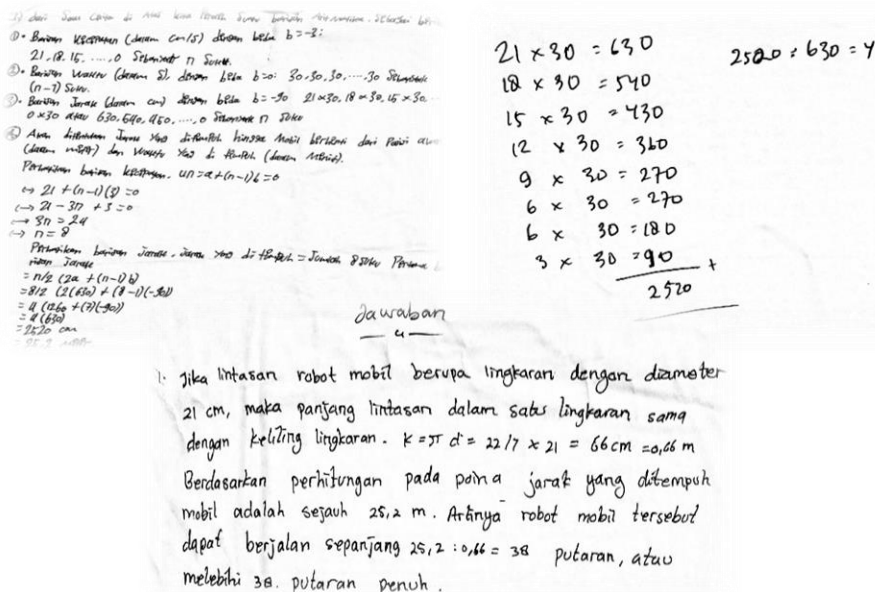 1) dari
①. Barisan kecepatan (dalam cm/s) dengan beda b=-3:
21, 18, 15, ...., 0 Sebanyak n Suku.
②. Barisan waktu (dalam s), dengan beda b=0: 30, 30, 30, ...., 30 Sebanyak
(n-1) Suku.
③. Barisan Jarak (dalam cm) dengan beda b=-90 21×30, 18×30, 15×30, ..
0×30 atau 630, 540, 450, ...., 0 Sebanyak n Suku
④ Akan ditentukan Jarak yang ditempuh hingga Mobil berhenti dari Posisi
(dalam meter) dan Waktu yang di tempuh (dalam Menit).
Perhatikan barisan kecepatan. un=a+(n-1)b=0
↔ 21 + (n-1)(3)=0
↔ 21 - 3n + 3 = 0
↔ 3n = 24
↔ n = 8
Perhatikan barisan Jarak. Jarak yang di tempuh = Jumlah 8 suku Pertama
Jarak
= n/2 (2a + (n-1)b)
= 8/2 (2(630) + (8-1)(-90))
= 4 (1260 + (7)(-90))
= 4 (630)
= 2520 cm
= 25,2 meter
21 × 30 = 630
18 × 30 = 540
15 × 30 = 430
12 × 30 = 360
9 × 30 = 270
6 × 30 = 270
6 × 30 = 180
3 × 30 = 90
+
2520
2520 : 630 = 4
Jawaban
4
1. Jika lintasan robot mobil berupa lingkaran dengan diameter
21 cm, maka panjang lintasan dalam satu lingkaran sama
dengan keliling lingkaran. K = π d = 22/7 × 21 = 66 cm = 0,66 m
Berdasarkan perhitungan pada poin a jarak yang ditempuh
mobil adalah sejauh 25,2 m. Artinya robot mobil tersebut
dapat berjalan sepanjang 25,2 : 0,66 = 38 putaran, atau
melebihi 38. putaran penuh.